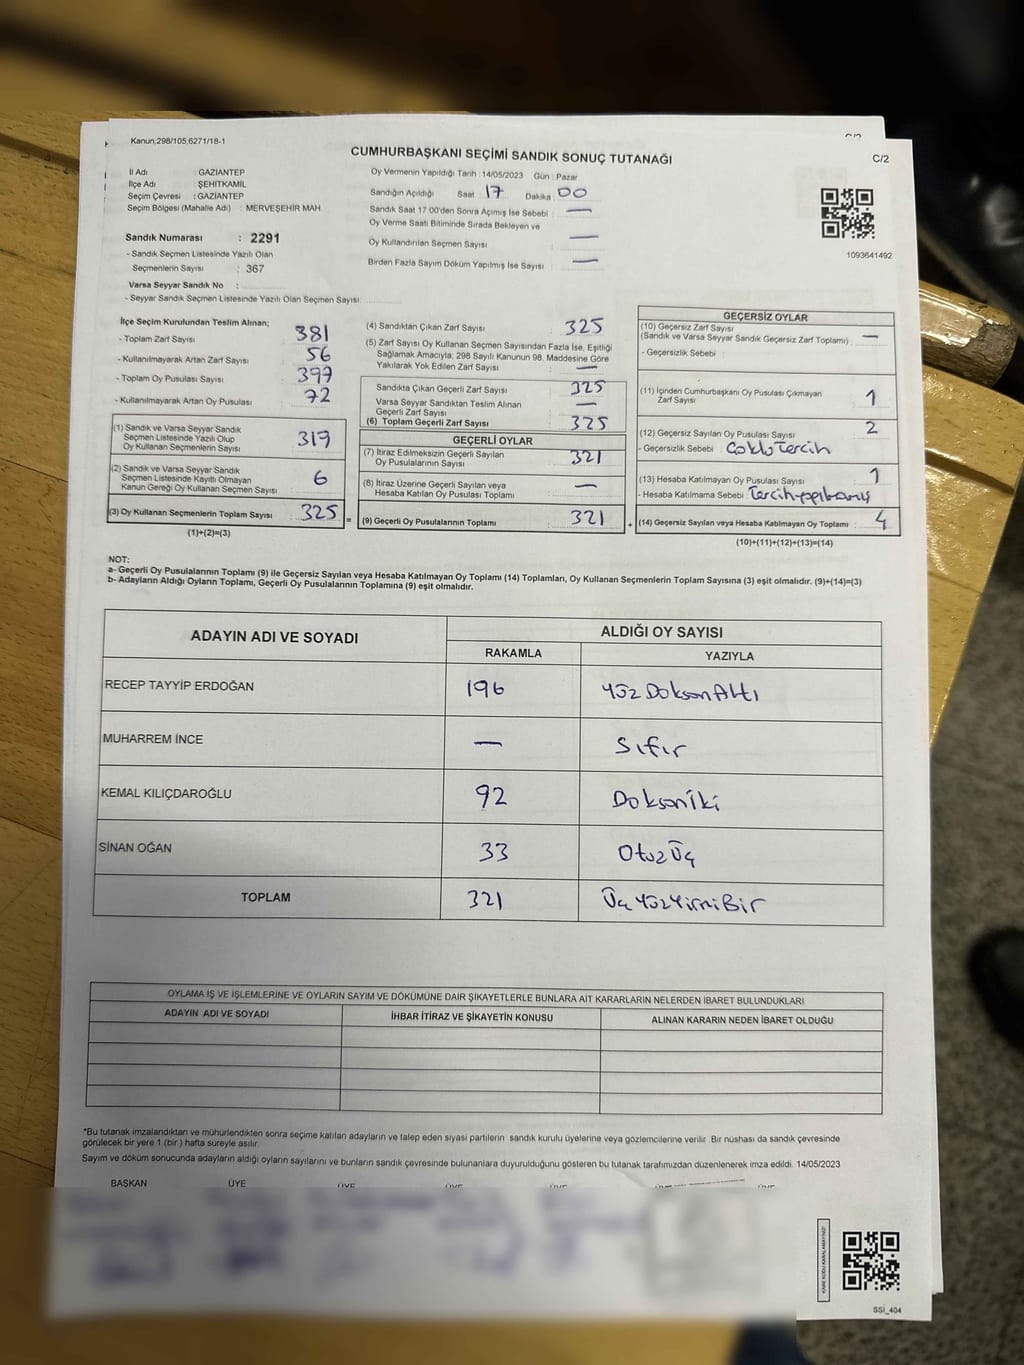 Kanun:298/105;6271/18-1
C/2
CUMHURBAŞKANI SEÇİMİ SANDIK SONUÇ TUTANAĞI
C/2
İl Adı : GAZİANTEP
İlçe Adı : ŞEHİTKAMİL
Seçim Çevresi : GAZİANTEP
Seçim Bölgesi (Mahalle Adı) : MERVEŞEHİR MAH.
Sandık Numarası : 2291
- Sandık Seçmen Listesinde Yazılı Olan
Seçmenlerin Sayısı : 367
Varsa Seyyar Sandık No :
- Seyyar Sandık Seçmen Listesinde Yazılı Olan Seçmen Sayısı:
Oy Vermenin Yapıldığı Tarih : 14/05/2023 Gün : Pazar
Sandığın Açıldığı Saat : 17 Dakika : 00
Sandık Saat 17:00'den Sonra Açımış İse Sebebi : —
Oy Verme Saati Bitiminde Sırada Bekleyen ve
Oy Kullandırılan Seçmen Sayısı : —
Birden Fazla Sayım Döküm Yapılmış İse Sayısı : —
1093641492
İlçe Seçim Kurulundan Teslim Alınan;
- Toplam Zarf Sayısı : 381
- Kullanılmayarak Artan Zarf Sayısı : 56
- Toplam Oy Pusulası Sayısı : 397
- Kullanılmayarak Artan Oy Pusulası : 72
(1) Sandık ve Varsa Seyyar Sandık
Seçmen Listesinde Yazılı Olup
Oy Kullanan Seçmenlerin Sayısı : 319
(2) Sandık ve Varsa Seyyar Sandık
Seçmen Listesinde Kayıtlı Olmayan
Kanun Gereği Oy Kullanan Seçmen Sayısı : 6
(3) Oy Kullanan Seçmenlerin Toplam Sayısı : 325
(1)+(2)=(3)
=
(4) Sandıktan Çıkan Zarf Sayısı : 325
(5) Zarf Sayısı Oy Kullanan Seçmen Sayısından Fazla İse, Eşitliği
Sağlamak Amacıyla, 298 Sayılı Kanunun 98. Maddesine Göre
Yakılarak Yok Edilen Zarf Sayısı : —
Sandıkta Çıkan Geçerli Zarf Sayısı : 325
Varsa Seyyar Sandıktan Teslim Alınan
Geçerli Zarf Sayısı : —
(6) Toplam Geçerli Zarf Sayısı : 325
GEÇERLİ OYLAR
(7) İtiraz Edilmeksizin Geçerli Sayılan
Oy Pusulalarının Sayısı : 321
(8) İtiraz Üzerine Geçerli Sayılan veya
Hesaba Katılan Oy Pusulası Toplamı : —
(9) Geçerli Oy Pusulalarının Toplamı : 321
+
GEÇERSİZ OYLAR
(10) Geçersiz Zarf Sayısı
(Sandık ve Varsa Seyyar Sandık Geçersiz Zarf Toplamı) : —
- Geçersizlik Sebebi :
(11) İçinden Cumhurbaşkanı Oy Pusulası Çıkmayan
Zarf Sayısı : 1
(12) Geçersiz Sayılan Oy Pusulası Sayısı : 2
- Geçersizlik Sebebi : Çoklu Tercih
(13) Hesaba Katılmayan Oy Pusulası Sayısı : 1
- Hesaba Katılmama Sebebi :
(14) Geçersiz Sayılan veya Hesaba Katılmayan Oy Toplamı : 4
(10)+(11)+(12)+(13)=(14)
NOT:
a- Geçerli Oy Pusulalarının Toplamı (9) ile Geçersiz Sayılan veya Hesaba Katılmayan Oy Toplamı (14) Toplamları, Oy Kullanan Seçmenlerin Toplam Sayısına (3) eşit olmalıdır. (9)+(14)=(3)
b- Adayların Aldığı Oyların Toplamı, Geçerli Oy Pusulalarının Toplamına (9) eşit olmalıdır.
ADAYIN ADI VE SOYADI
ALDIĞI OY SAYISI
RAKAMLA YAZIYLA
RECEP TAYYİP ERDOĞAN 196 YüzDoksanAltı
MUHARREM İNCE — Sıfır
KEMAL KILIÇDAROĞLU 92 Doksaniki
SİNAN OĞAN 33 OtuzÜç
TOPLAM 321 ÜçYüzYirmiBir
OYLAMA İŞ VE İŞLEMLERİNE VE OYLARIN SAYIM VE DÖKÜMÜNE DAİR ŞİKAYETLERLE BUNLARA AİT KARARLARIN NELERDEN İBARET BULUNDUKLARI
ADAYIN ADI VE SOYADI İHBAR İTİRAZ VE ŞİKAYETİN KONUSU ALINAN KARARIN NEDEN İBARET OLDUĞU
*Bu tutanak imzalandıktan ve mühürlendikten sonra seçime katılan adayların ve talep eden siyasi partilerin sandık kurulu üyelerine veya gözlemcilerine verilir. Bir nüshası da sandık çevresinde
görülecek bir yere 1 (bir) hafta süreyle asılır.
Sayım ve döküm sonucunda adayların aldığı oyların sayılarını ve bunların sandık çevresinde bulunanlara duyurulduğunu gösteren bu tutanak tarafımızdan düzenlenerek imza edildi. 14/05/2023
BAŞKAN ÜYE ÜYE ÜYE ÜYE ÜYE
SSİ_404